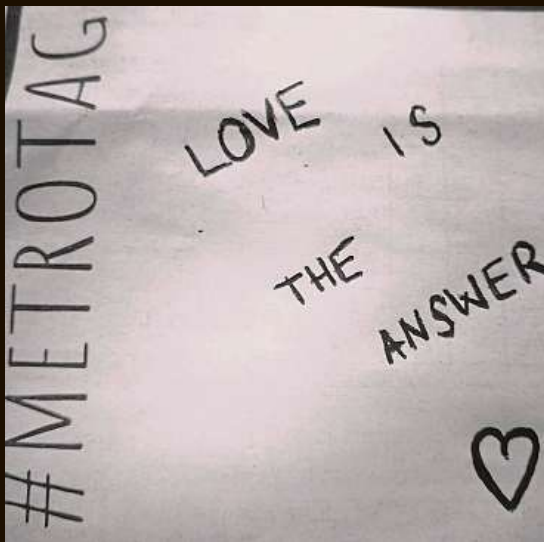 #METROTAG
LOVE IS
THE
ANSWER